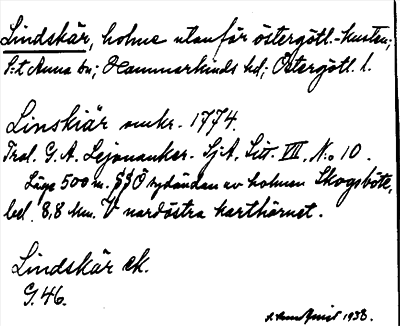 Lindskär, holme utanför östergötl.-kusten;
S:t Anna sn; Hammarkinds hd; Östergötl. l.
Linskiär omkr. 1774.
G. A. Lejonanker. SjA, Litt. VII, N:o 10.
Läge 500 m. SSÖ sydändan av holmen Skogsböte,
bel. 8,8 km. V nordöstra karthörnet.
Lindskär ek.
G. 46.
1938.